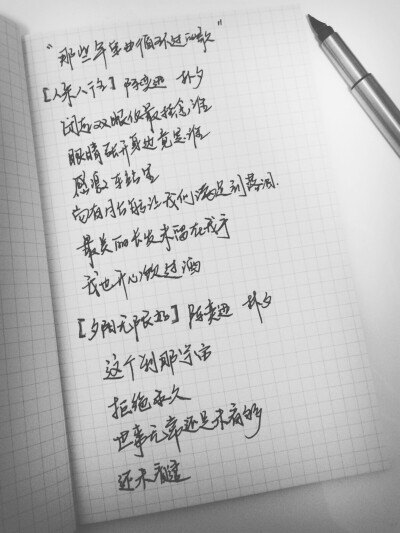 “那些年单曲循环过的歌”
[人来人往] 陈奕迅 林夕
闭起双眼你最挂念谁
眼睛张开身边竟是谁
感激车站里
尚有月台能让我们满足到落泪
最美丽长发未留在我手
我也开心饮过酒
[夕阳无限好] 陈奕迅 林夕
这个刹那宇宙
拒绝永久
世事无常还是未看够
还未看透